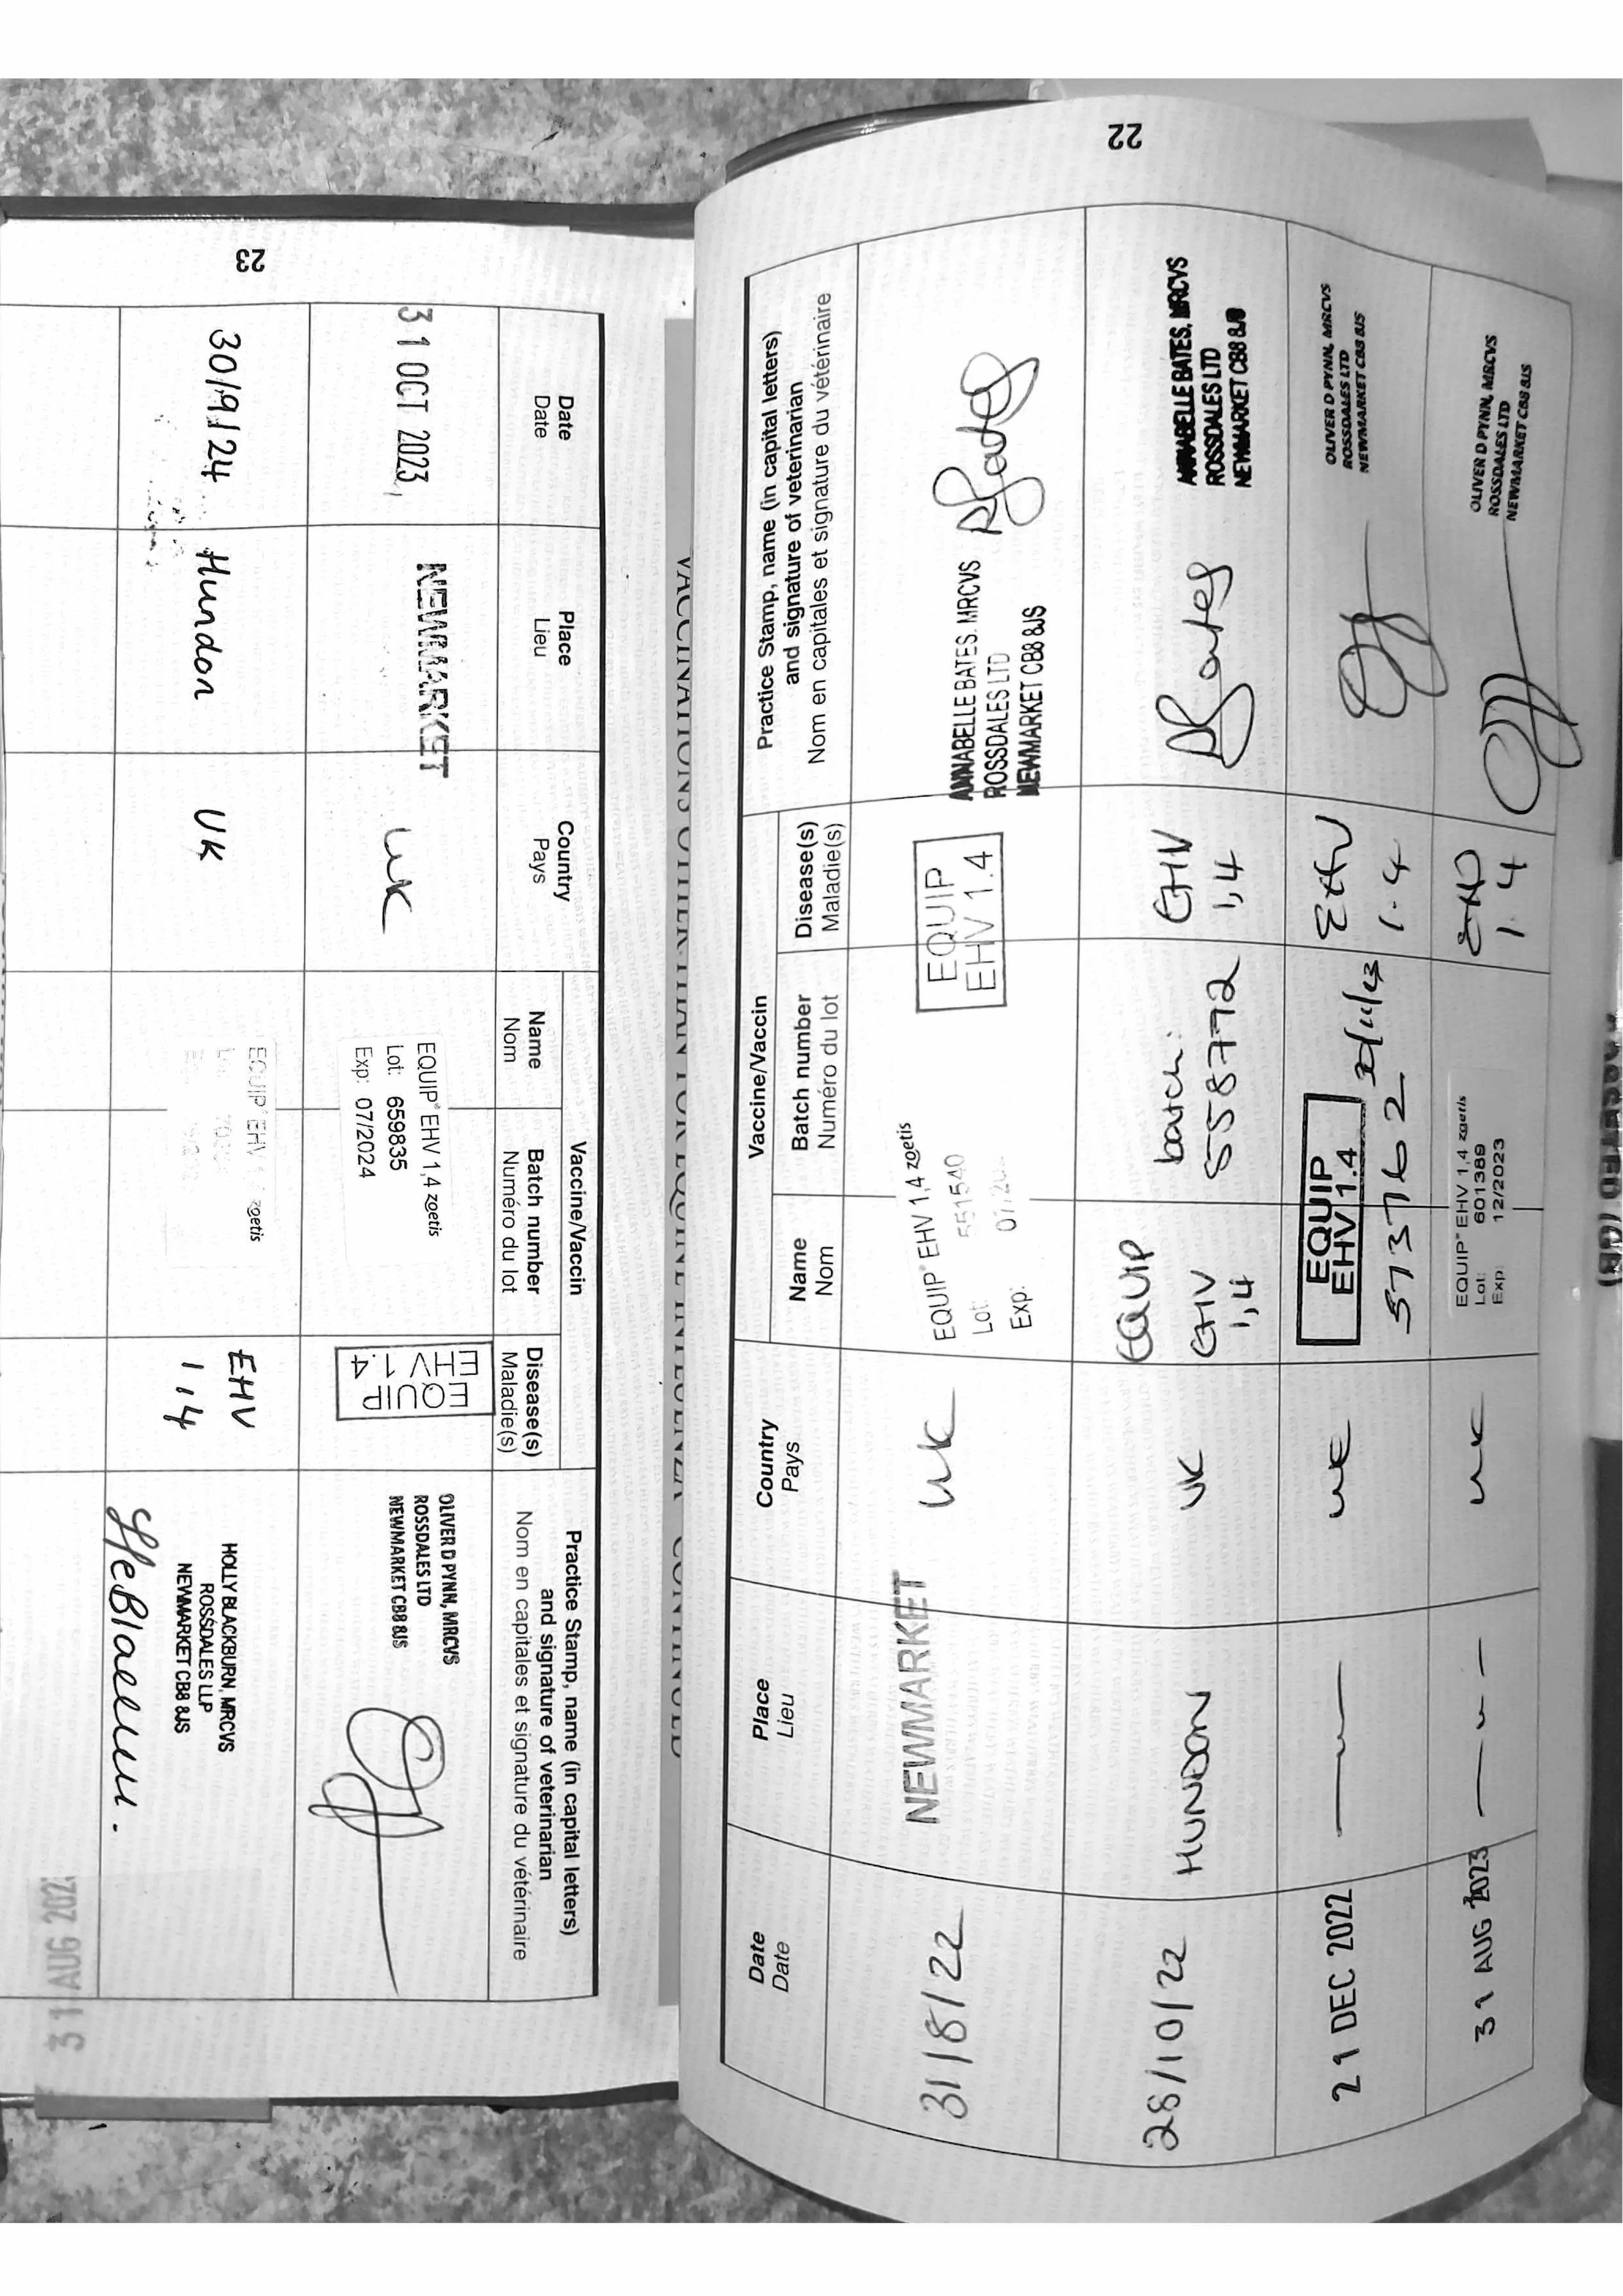 22
Date
Date
Place
Lieu
Country
Pays
Vaccine/Vaccin
Name
Nom
Batch number
Numéro du lot
Disease(s)
Maladie(s)
Practice Stamp, name (in capital letters)
and signature of veterinarian
Nom en capitales et signature du vétérinaire
31/8/22
NEWMARKET
UK
EQUIP EHV 1,4 zoetis
Lot: 551540
Exp:
EQUIP
EHV 1.4
ANNABELLE BATES. MRCVS
ROSSDALES LTD
NEWMARKET CB8 8JS
28/10/22
HUNDON
UK
EQUIP
EHV
1,4
batch:
558772
EHV
1,4
ANNABELLE BATES. MRCVS
ROSSDALES LTD
NEWMARKET CB8 8JS
21 DEC 2022
UK
EQUIP
EHV 1.4
573762
EHV
1.4
OLIVER D PYNN, MRCVS
ROSSDALES LTD
NEWMARKET CB8 8JS
31 AUG 2023
UK
EQUIP EHV 1,4 zoetis
Lot: 601389
Exp: 12/2023
EHV
1.4
OLIVER D PYNN, MRCVS
ROSSDALES LTD
NEWMARKET CB8 8JS
VACCINATIONS OTHER THAN FOR EQUINE INFLUENZA CONTINUED
23
Date
Date
Place
Lieu
Country
Pays
Vaccine/Vaccin
Name
Nom
Batch number
Numéro du lot
Disease(s)
Maladie(s)
Practice Stamp, name (in capital letters)
and signature of veterinarian
Nom en capitales et signature du vétérinaire
31 OCT 2023
NEWMARKET
UK
EQUIP EHV 1,4 zoetis
Lot: 659835
Exp: 07/2024
EQUIP
EHV 1.4
OLIVER D PYNN, MRCVS
ROSSDALES LTD
NEWMARKET CB8 8JS
30/9/24
Hundon
UK
EQUIP EHV zoetis
EHV
1,4
HOLLY BLACKBURN, MRCVS
ROSSDALES LLP
NEWMARKET CB8 8JS
31 AUG 202